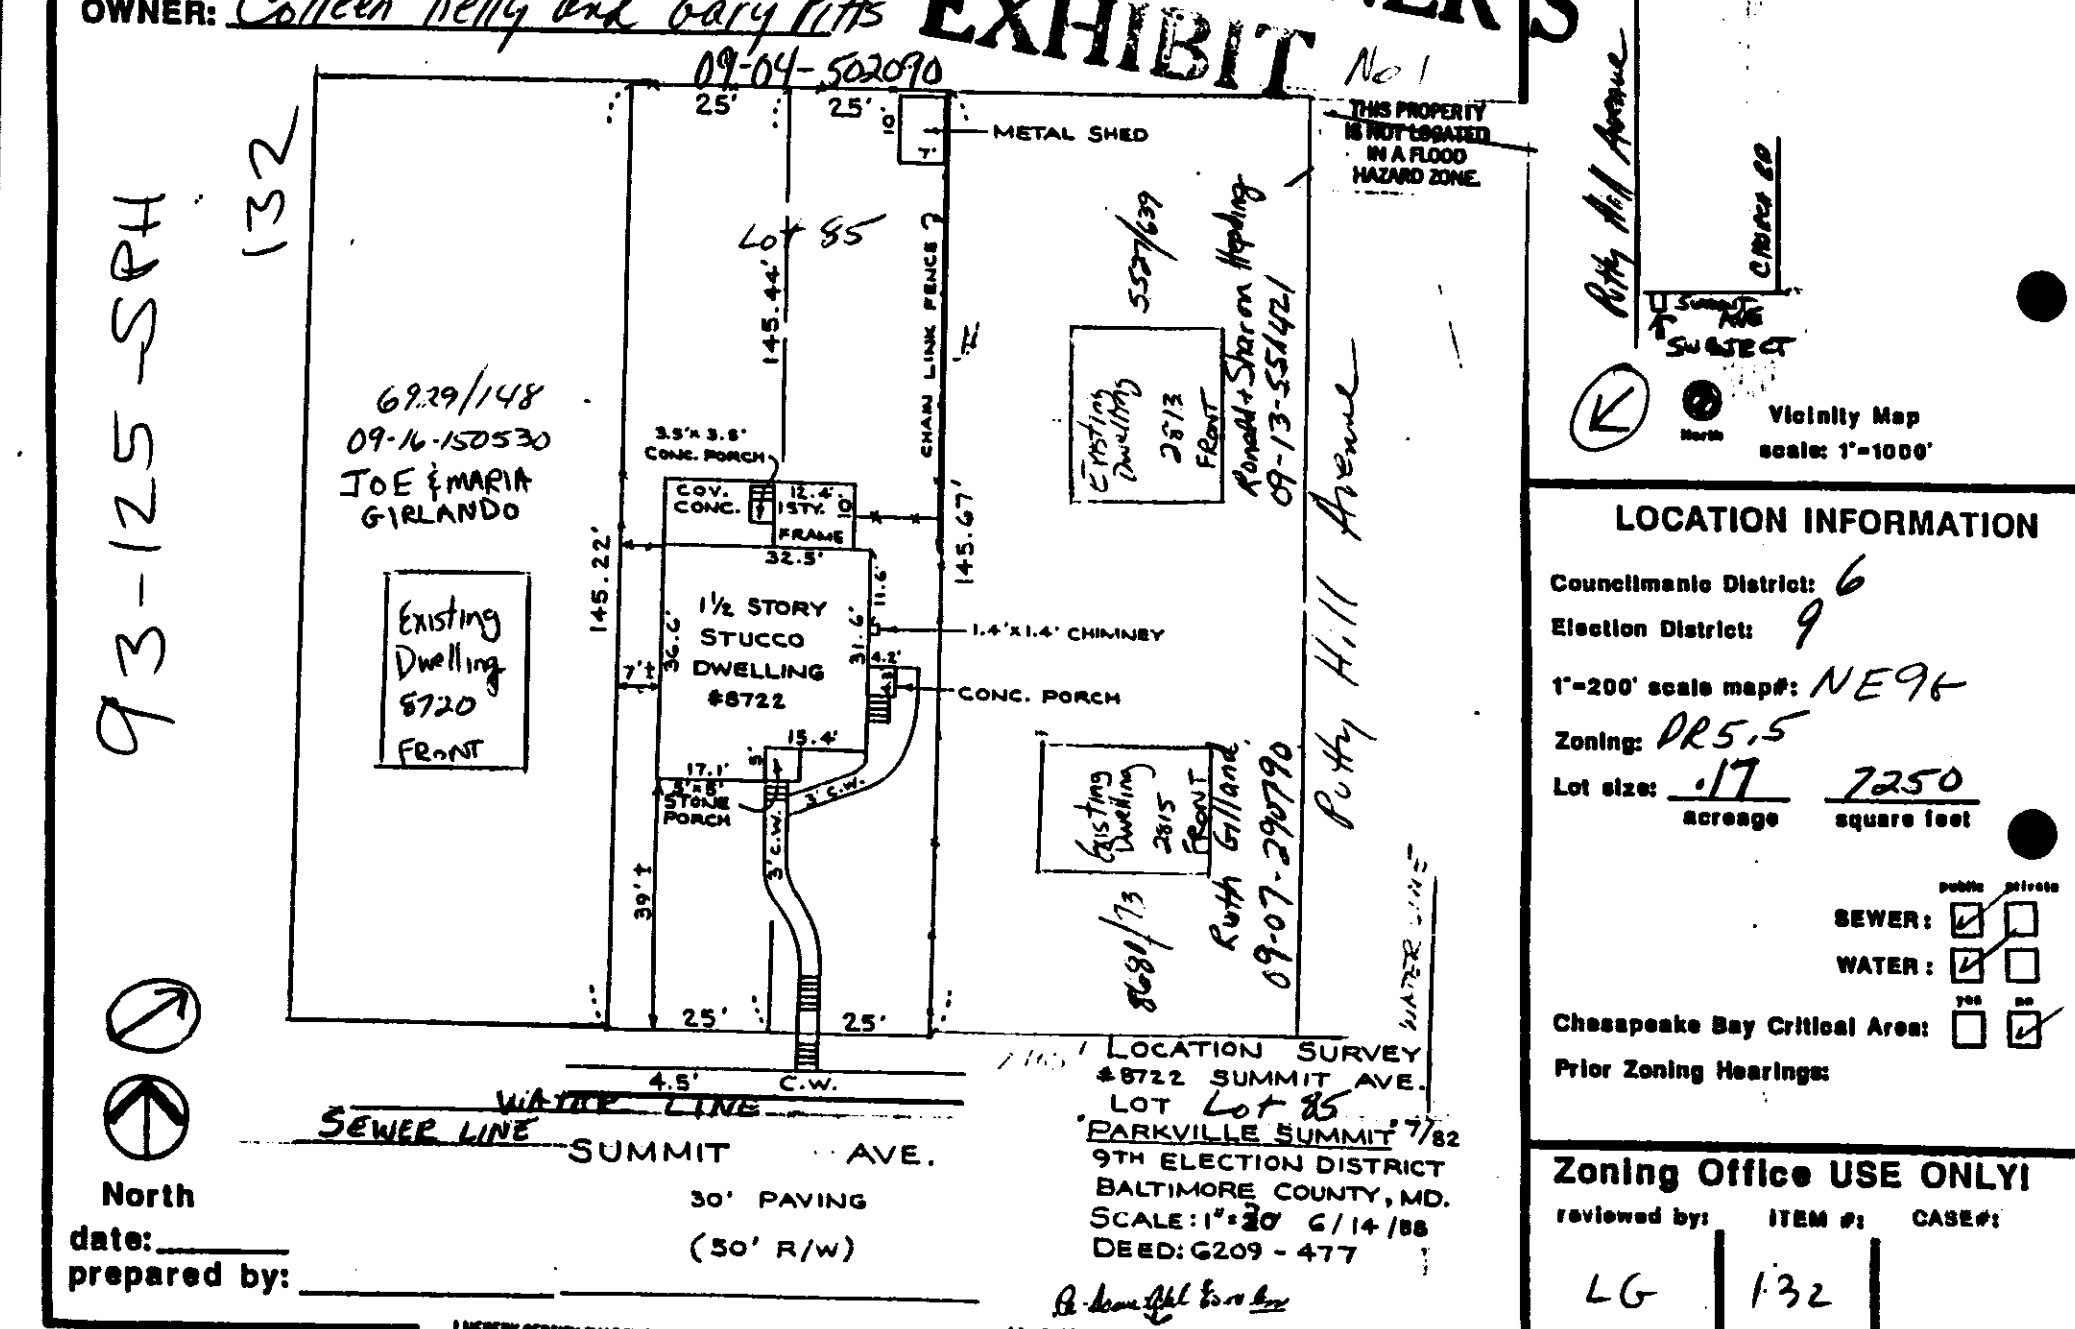 OWNER: Colleen Kelly and Gary Pitts
EXHIBIT
No 1
09-04-502090
25'
25'
10'
7'
METAL SHED
THIS PROPERTY
IS NOT LOCATED
IN A FLOOD
HAZARD ZONE.
93-125-SPH
132
Lot 85
145.44'
CHAIN LINK FENCE
5527/639
Ronald + Sharon Hepding
09-13-551421
Existing
Dwelling
2813
FRONT
6929/148
09-16-150530
JOE & MARIA
GIRLANDO
Existing
Dwelling
8720
FRONT
145.22'
3.5' x 3.8'
CONC. PORCH
COV.
CONC.
12.4'
1 STY.
10'
FRAME
32.5'
145.67'
11.6'
1½ STORY
STUCCO
DWELLING
#8722
36.6'
31.6'
7'±
1.4' x 1.4' CHIMNEY
4.2'
CONC. PORCH
15.4'
5'
17.1'
5' x 5'
STONE
PORCH
3' C.W.
3' C.W.
39'±
25'
25'
Existing
Dwelling
2815
FRONT
Ruth Gilland
09-07-290790
8680/73
Putty Hill Avenue
WATER LINE
4.5'
C.W.
WATER LINE
SEWER LINE
SUMMIT AVE.
30' PAVING
(50' R/W)
North
date:
prepared by:
LOCATION SURVEY
#8722 SUMMIT AVE.
LOT Lot 85
"PARKVILLE SUMMIT" 7/82
9TH ELECTION DISTRICT
BALTIMORE COUNTY, MD.
SCALE: 1"=30' 6/14/88
DEED: 6209-477
Putty Hill Avenue
CHURCH RD
SUMMIT
AVE
SUBJECT
North
Vicinity Map
scale: 1"=1000'
LOCATION INFORMATION
Councilmanic District: 6
Election District: 9
1"=200' scale map#: NE9E
Zoning: DR5.5
Lot size: .17 7250
acreage square feet
public private
SEWER:
WATER:
yes no
Chesapeake Bay Critical Area:
Prior Zoning Hearings:
Zoning Office USE ONLY!
reviewed by: ITEM #: CASE#:
LG 132